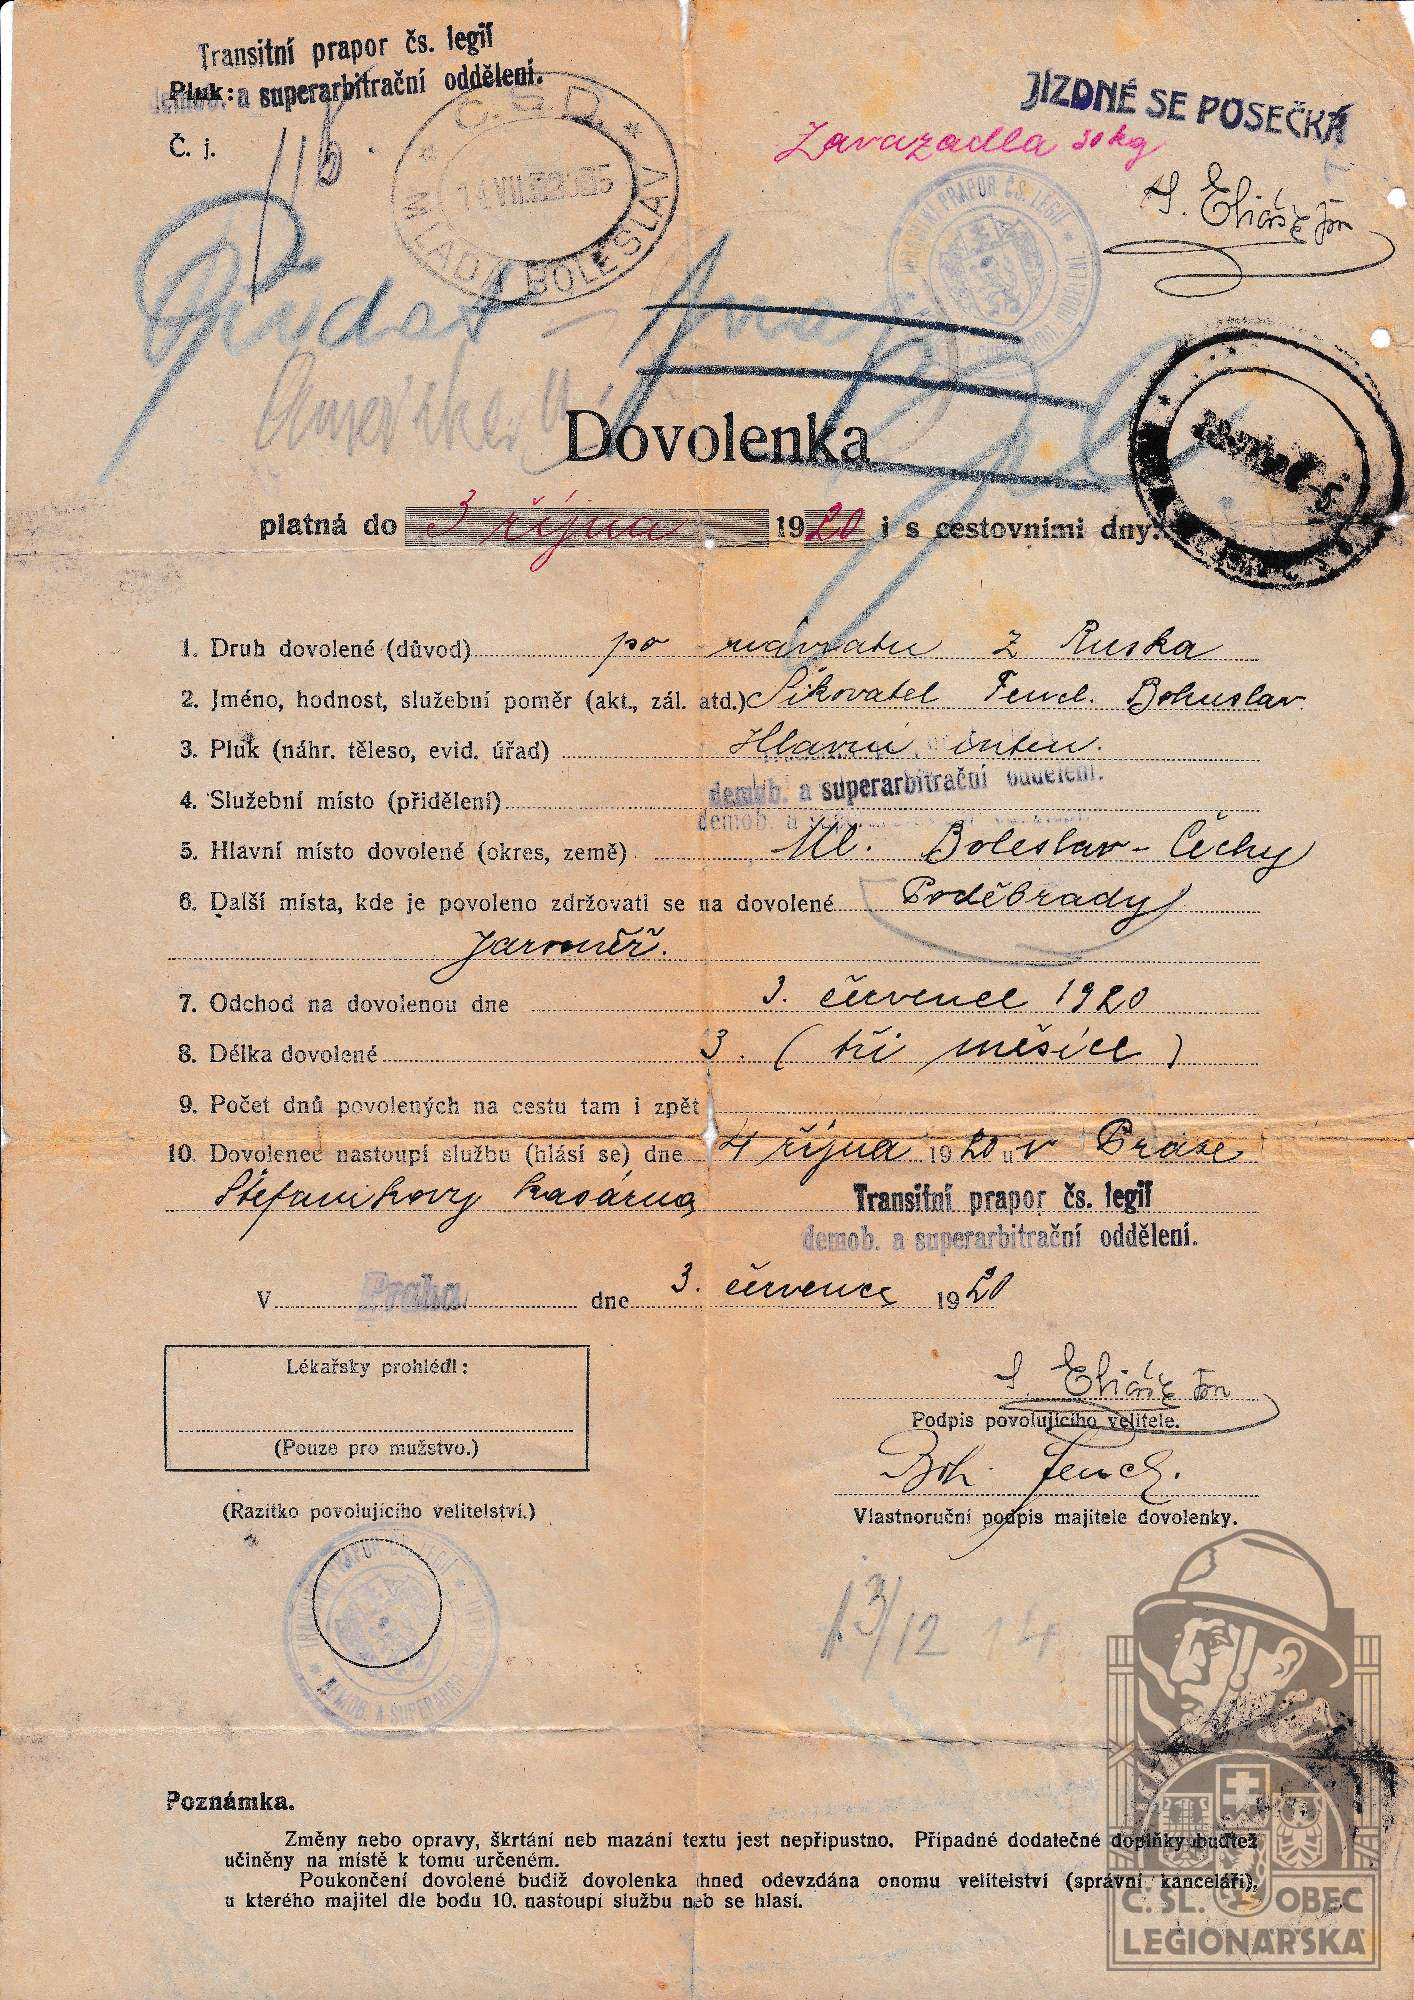 Transitní prapor čs. legií
Pluk:
demob. a superarbitrační oddělení.
Č. j.
Č. S. D.
MLADÁ BOLESLAV
JÍZDNÉ SE POSEČKÁ
Zavazadla 30 kg
Š. Eliáš
PRAPOR ČS. LEGIÍ
Dovolenka
platná do 3 října 1920 i s cestovními dny.
1. Druh dovolené (důvod) po návratu z Ruska
2. Jméno, hodnost, služební poměr (akt., zál. atd.) Šikovatel Fencl. Bohuslav
3. Pluk (náhr. těleso, evid. úřad) Hlavní inten.
demob. a superarbitrační oddělení.
4. Služební místo (přidělení)
demob. a
5. Hlavní místo dovolené (okres, země) Ml. Boleslav - Čechy
6. Další místa, kde je povoleno zdržovati se na dovolené Poděbrady
Jaroměř.
7. Odchod na dovolenou dne 3. července 1920
8. Délka dovolené 3. (tři měsíce)
9. Počet dnů povolených na cestu tam i zpět
10. Dovolenec nastoupí službu (hlásí se) dne 4 října 1920 u v Praze
Štefanikovy kasárna
Transitní prapor čs. legií
demob. a superarbitrační oddělení.
V Praha dne 3. července 1920
Lékařsky prohlédl:
(Pouze pro mužstvo.)
Š. Eliáš
Podpis povolujícího velitele.
Boh. Fencl.
Vlastnoruční podpis majitele dovolenky.
(Razítko povolujícího velitelství.)
PRAPOR ČS. LEGIÍ
13/12 14
Poznámka.
Změny nebo opravy, škrtání neb mazání textu jest nepřípustno. Případné dodatečné doplňky buďtež
učiněny na místě k tomu určeném.
Po ukončení dovolené budiž dovolenka ihned odevzdána onomu velitelství (správní kanceláři),
u kterého majitel dle bodu 10. nastoupí službu neb se hlásí.
Č. SL. OBEC
LEGIONÁŘSKÁ